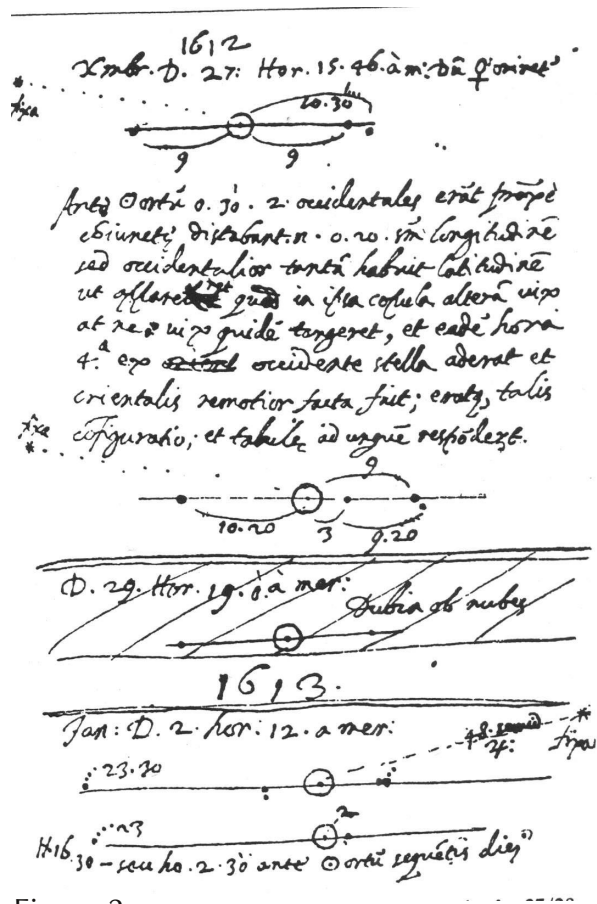 1612
Xmbr. D. 27: Hor. 15. 46. à m:
fixa
10.30
9 9
Ante ☉ ortũ 0. 30. 2. occidentales erãt prope
distabant. n. 0.20. longitudinẽ
sed occidentalior tantã habuit latitudinẽ
ut in ipsa copula alterã uix
at uix quidẽ tangeret, et eadẽ hora
4.ª ex occidente stella aderat et
orientalis remotior facta fuit; eratq, talis
cõfiguratio; et tabulę ad unguẽ
fixa
9
10.20 3 9.20
D. 29. Hor. 19. à mer:
Dubia ob nubes
1613.
Jan: D. 2. hor: 12. a mer:
♃: fixa
23.30
23 2
H. 16.30 – seu ho. 2. 30 ante ☉ ortũ sequẽtis diei
Figure 2
27/28